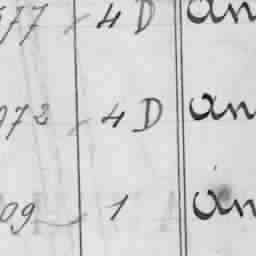 577 4 D an
972 4 D an
09 1 an